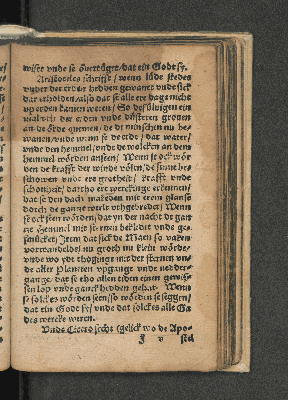 wiſte vnde ſe övertüget/dat ein Godt ſy.
Ariſtoteles ſchrifft/wenn lüde ſtedes
vnder der erden hedden gewanet vnde ſick
dar erholden/alſo dat ſe alle ere dage nicht
vp erden kamen weren/So deſülvigen ein
mal vth der erden vnde düſteren gronen
an de örde quemen/de de minſchen nu be⸗
wanen/vnde wenn ſe de erde/dat water/
vnde den hemmel/vnde de wolcken an dem
hemmel wörden anſeen/Wenn ſe ock wör
den de krafft der winde völen/de ſünne be⸗
ſchowen vnde ere grotheit/krafft vnde
ſchonheit/dartho ere werckinge erkennen/
dat ſe den dach makeden mit erem glantze
dorch de gantze werlt vthgebredet; Wenn
ſe ock ſeen wörden/dat yn der nacht de gan
tze Hemmel mit ſternen bekledet vnde ge⸗
ſmücket; Item dat ſick de Maen ſo vaken
vorwandelde/nu groth nu klein wörde/
vnde wo ydt thoginge mit der ſternen vn⸗
de aller planeten vpgange vnde nedder⸗
gange/dat ſe tho allen tiden einen gewiſ⸗
ſen lop vnde ganck hedden gehat. Wenn
ſe ſolckes wörden ſeen/ſo wörden ſe ſeggen/
dat ein Godt ſy/vnde dat ſolckes alle Ga⸗
des wercke weren.
Vnde Cicero ſecht (gelick wo de Apo⸗
J v ſtel